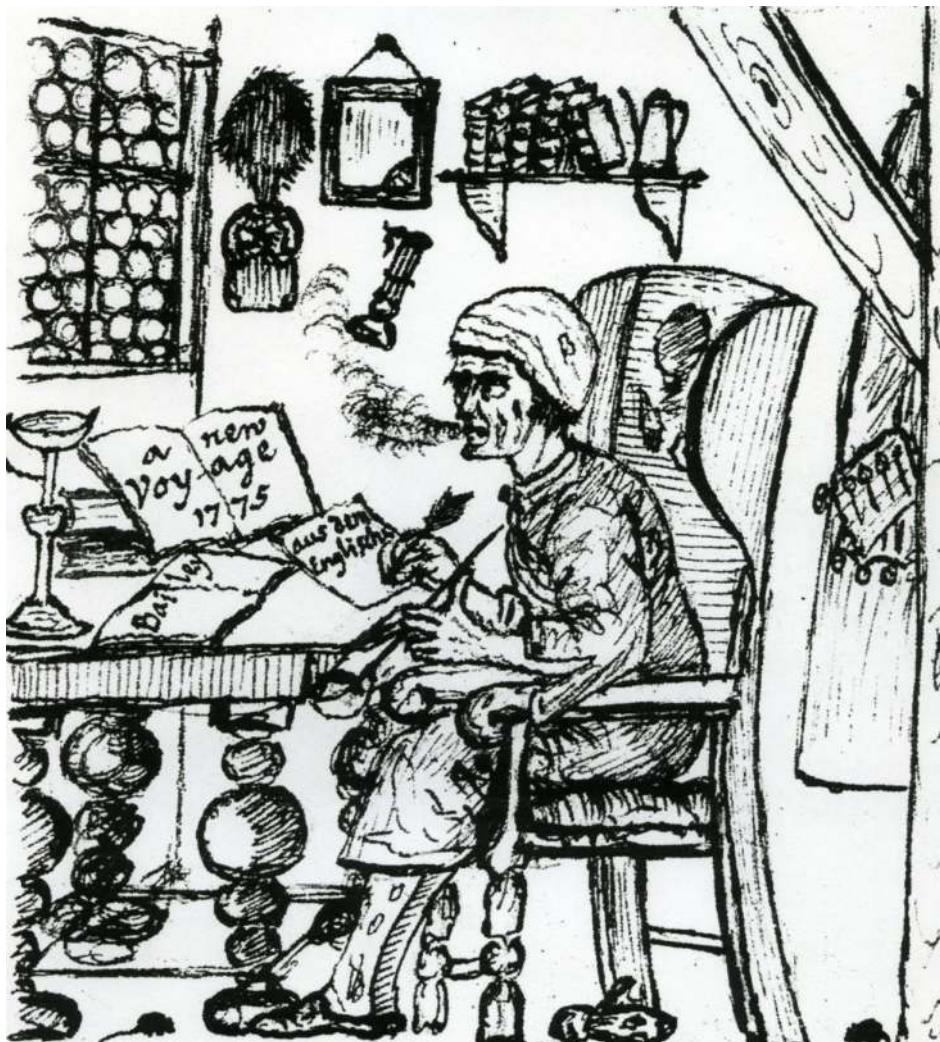 a new
Voyage
1775
aus dem
Englisch.
B